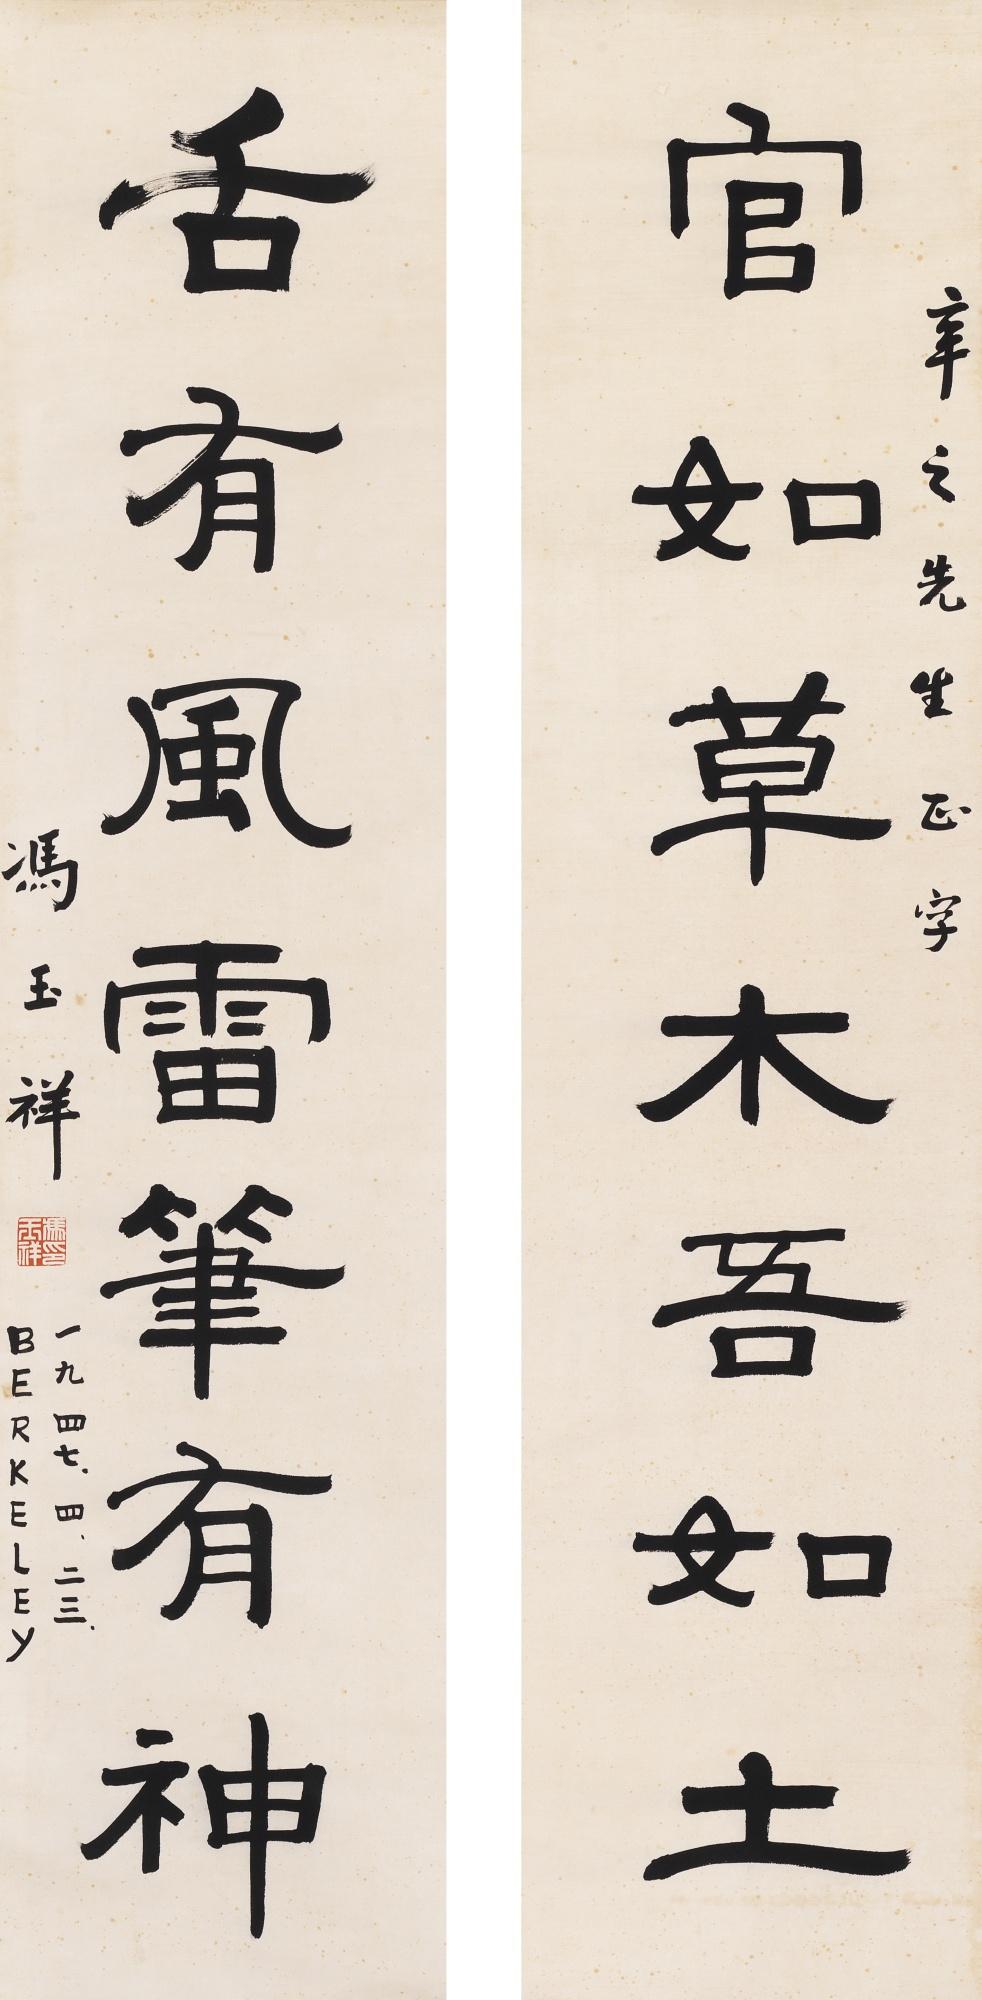 辛之先生正字
官如草木吾如土
舌有風雷筆有神
馮玉祥
馮玉祥印
一九四七、四、二三.
BERKELEY